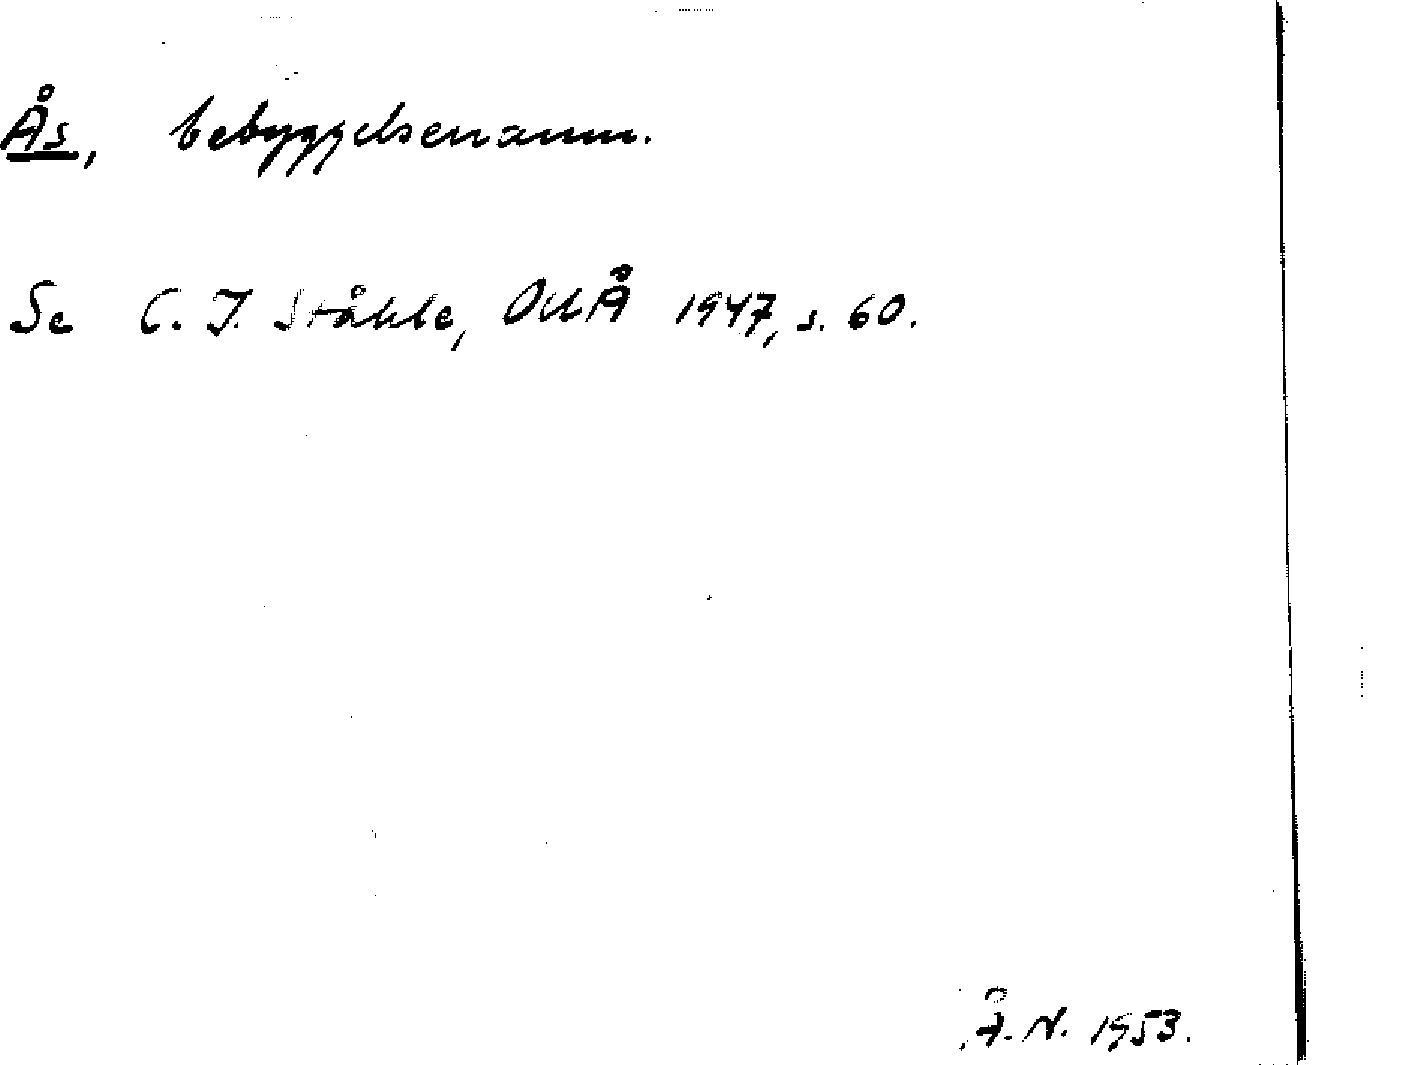 Ås, bebyggelsenamn.
Se C. I. Ståhle, OUÅ 1947, s. 60.
Å. N. 1953.